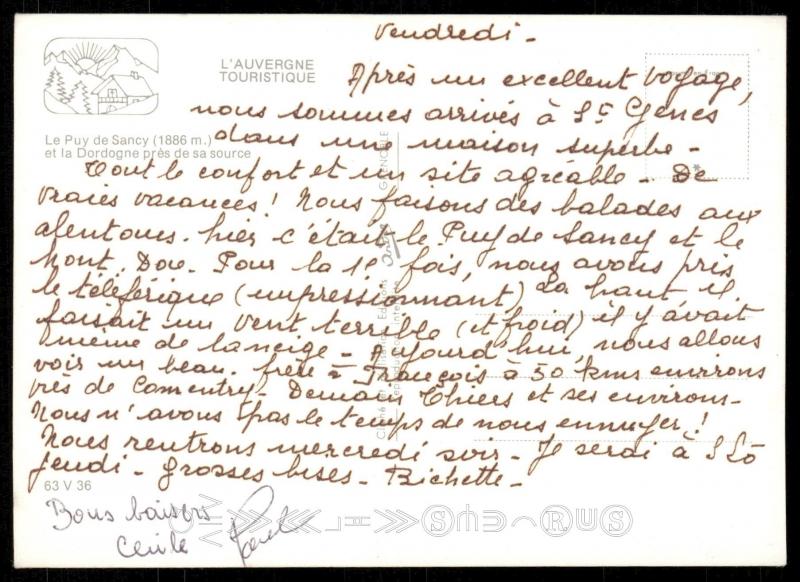 Vendredi -
L'AUVERGNE
TOURISTIQUE
Après un excellent voyage,
nous sommes arrivés à St Genes
dans une maison superbe -
Le Puy de Sancy (1886 m.)
et la Dordogne près de sa source
Tout le confort et un site agréable - De
vraies vacances ! Nous faisons des balades aux
alentours. hier c'était le Puy de Sancy et le
Mont, Dore. Pour la 1e fois, nous avons pris
le téléférique (impressionnant) La haut il
faisait un vent terrible (et froid) il y avait
même de la neige - Aujourd'hui, nous allons
voir un beau. frère - François à 50 kms environs
près de Comentry - Demain Thiers et ses environs -
Nous n'avons pas le temps de nous ennuyer !
Nous rentrons mercredi soir - Je serai à S Lô
jeudi - grosses bises - Bichette -
63 V 36
Bons baisers
Cécile
GRENOBLE